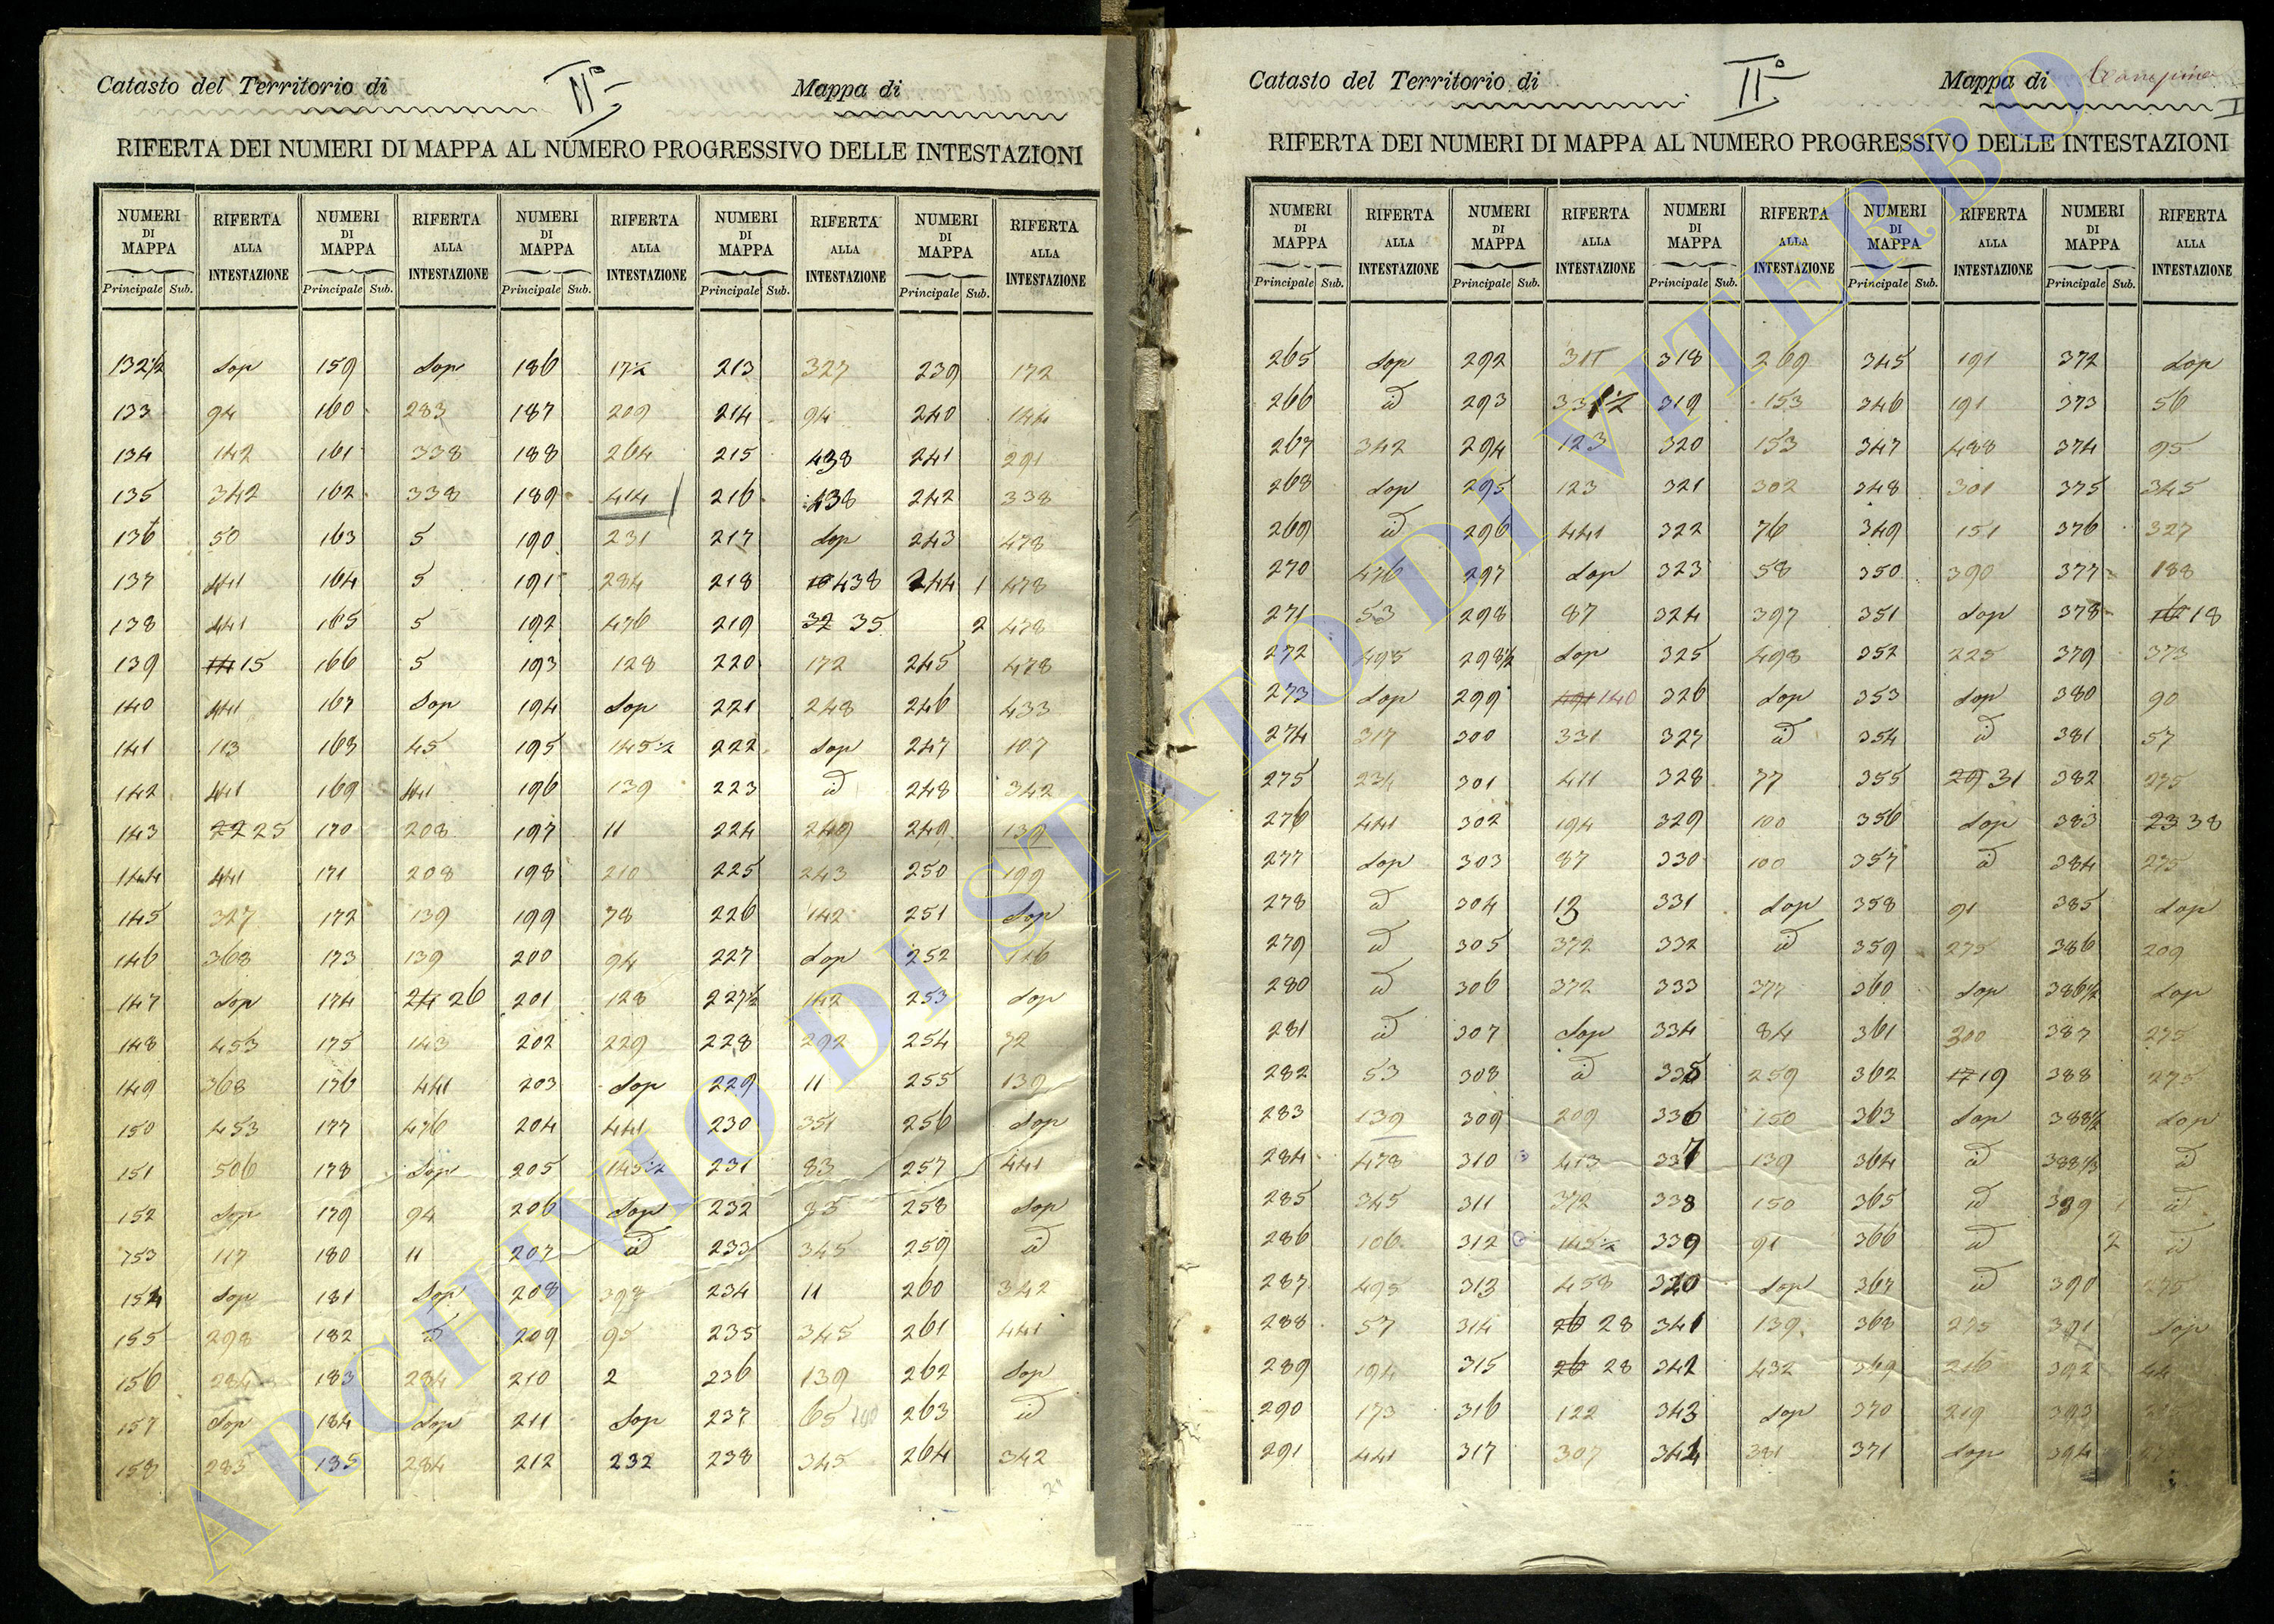 Catasto del Territorio di IIº Mappa di
RIFERTA DEI NUMERI DI MAPPA AL NUMERO PROGRESSIVO DELLE INTESTAZIONI
NUMERI DI MAPPA RIFERTA ALLA INTESTAZIONE NUMERI DI MAPPA RIFERTA ALLA INTESTAZIONE NUMERI DI MAPPA RIFERTA ALLA INTESTAZIONE NUMERI DI MAPPA RIFERTA ALLA INTESTAZIONE NUMERI DI MAPPA RIFERTA ALLA INTESTAZIONE
Principale Sub. Principale Sub. Principale Sub. Principale Sub. Principale Sub.
132½ Sop 159 Sop 186 17½ 213 327 239 172
133 94 160 283 187 209 214 94 240 144
134 142 161 338 188 264 215 438 241 291
135 342 162 338 189 414 216 438 242 338
136 50 163 5 190 231 217 Sop 243 478
137 441 164 5 191 284 218 438 244 1 478
138 441 165 5 192 476 219 32 35 2 478
139 14 15 166 5 193 128 220 172 245 478
140 441 167 Sop 194 Sop 221 248 246 433
141 113 168 45 195 145½ 222 Sop 247 107
142 441 169 441 196 139 223 id 248 342
143 22 25 170 208 197 11 224 249 249 139
144 441 171 208 198 210 225 243 250 199
145 327 172 139 199 78 226 142 251 Sop
146 368 173 139 200 94 227 Sop 252 146
147 Sop 174 24 26 201 128 227½ 142 253 Sop
148 453 175 143 202 229 228 292 254 72
149 368 176 441 203 Sop 229 11 255 139
150 453 177 476 204 441 230 351 256 Sop
151 506 178 Sop 205 145½ 231 83 257 441
152 Sop 179 94 206 Sop 232 83 258 Sop
153 117 180 11 207 id 233 345 259 id
154 Sop 181 Sop 208 398 234 11 260 342
155 298 182 id 209 95 235 345 261 441
156 284 183 284 210 2 236 139 262 Sop
157 Sop 184 Sop 211 Sop 237 65 263 id
158 283 185 284 212 232 238 345 264 342
Catasto del Territorio di IIº Mappa di
RIFERTA DEI NUMERI DI MAPPA AL NUMERO PROGRESSIVO DELLE INTESTAZIONI
NUMERI DI MAPPA RIFERTA ALLA INTESTAZIONE NUMERI DI MAPPA RIFERTA ALLA INTESTAZIONE NUMERI DI MAPPA RIFERTA ALLA INTESTAZIONE NUMERI DI MAPPA RIFERTA ALLA INTESTAZIONE NUMERI DI MAPPA RIFERTA ALLA INTESTAZIONE
Principale Sub. Principale Sub. Principale Sub. Principale Sub. Principale Sub.
265 Sop 292 311 318 269 345 191 372 Sop
266 id 293 331½ 319 153 346 191 373 56
267 342 294 123 320 153 347 488 374 95
268 Sop 295 123 321 302 348 301 375 345
269 id 296 441 322 76 349 151 376 327
270 476 297 Sop 323 58 350 390 377 188
271 53 298 87 324 397 351 Sop 378 16 18
272 495 298½ Sop 325 498 352 225 379 373
273 Sop 299 140 326 Sop 353 Sop 380 90
274 317 300 331 327 id 354 id 381 57
275 234 301 411 328 77 355 29 31 382 275
276 441 302 194 329 100 356 Sop 383 23 38
277 Sop 303 87 330 100 357 id 384 275
278 id 304 13 331 Sop 358 91 385 Sop
279 id 305 372 332 id 359 275 386 209
280 id 306 372 333 377 360 Sop 386½ Sop
281 id 307 Sop 334 84 361 300 387 275
282 53 308 id 335 259 362 17 19 388 275
283 139 309 209 336 150 363 Sop 388½ Sop
284 478 310 413 337 139 364 id 388⅓ id
285 345 311 372 338 150 365 id 389 1 id
286 106 312 145½ 339 91 366 id 2 id
287 495 313 458 340 Sop 367 id 390 275
288 57 314 26 28 341 139 368 275 391 Sop
289 194 315 26 28 342 432 369 216 392 44
290 173 316 122 343 Sop 370 219 393
291 441 317 307 344 381 371 Sop 394
ARCHIVIO DI STATO DI VITERBO